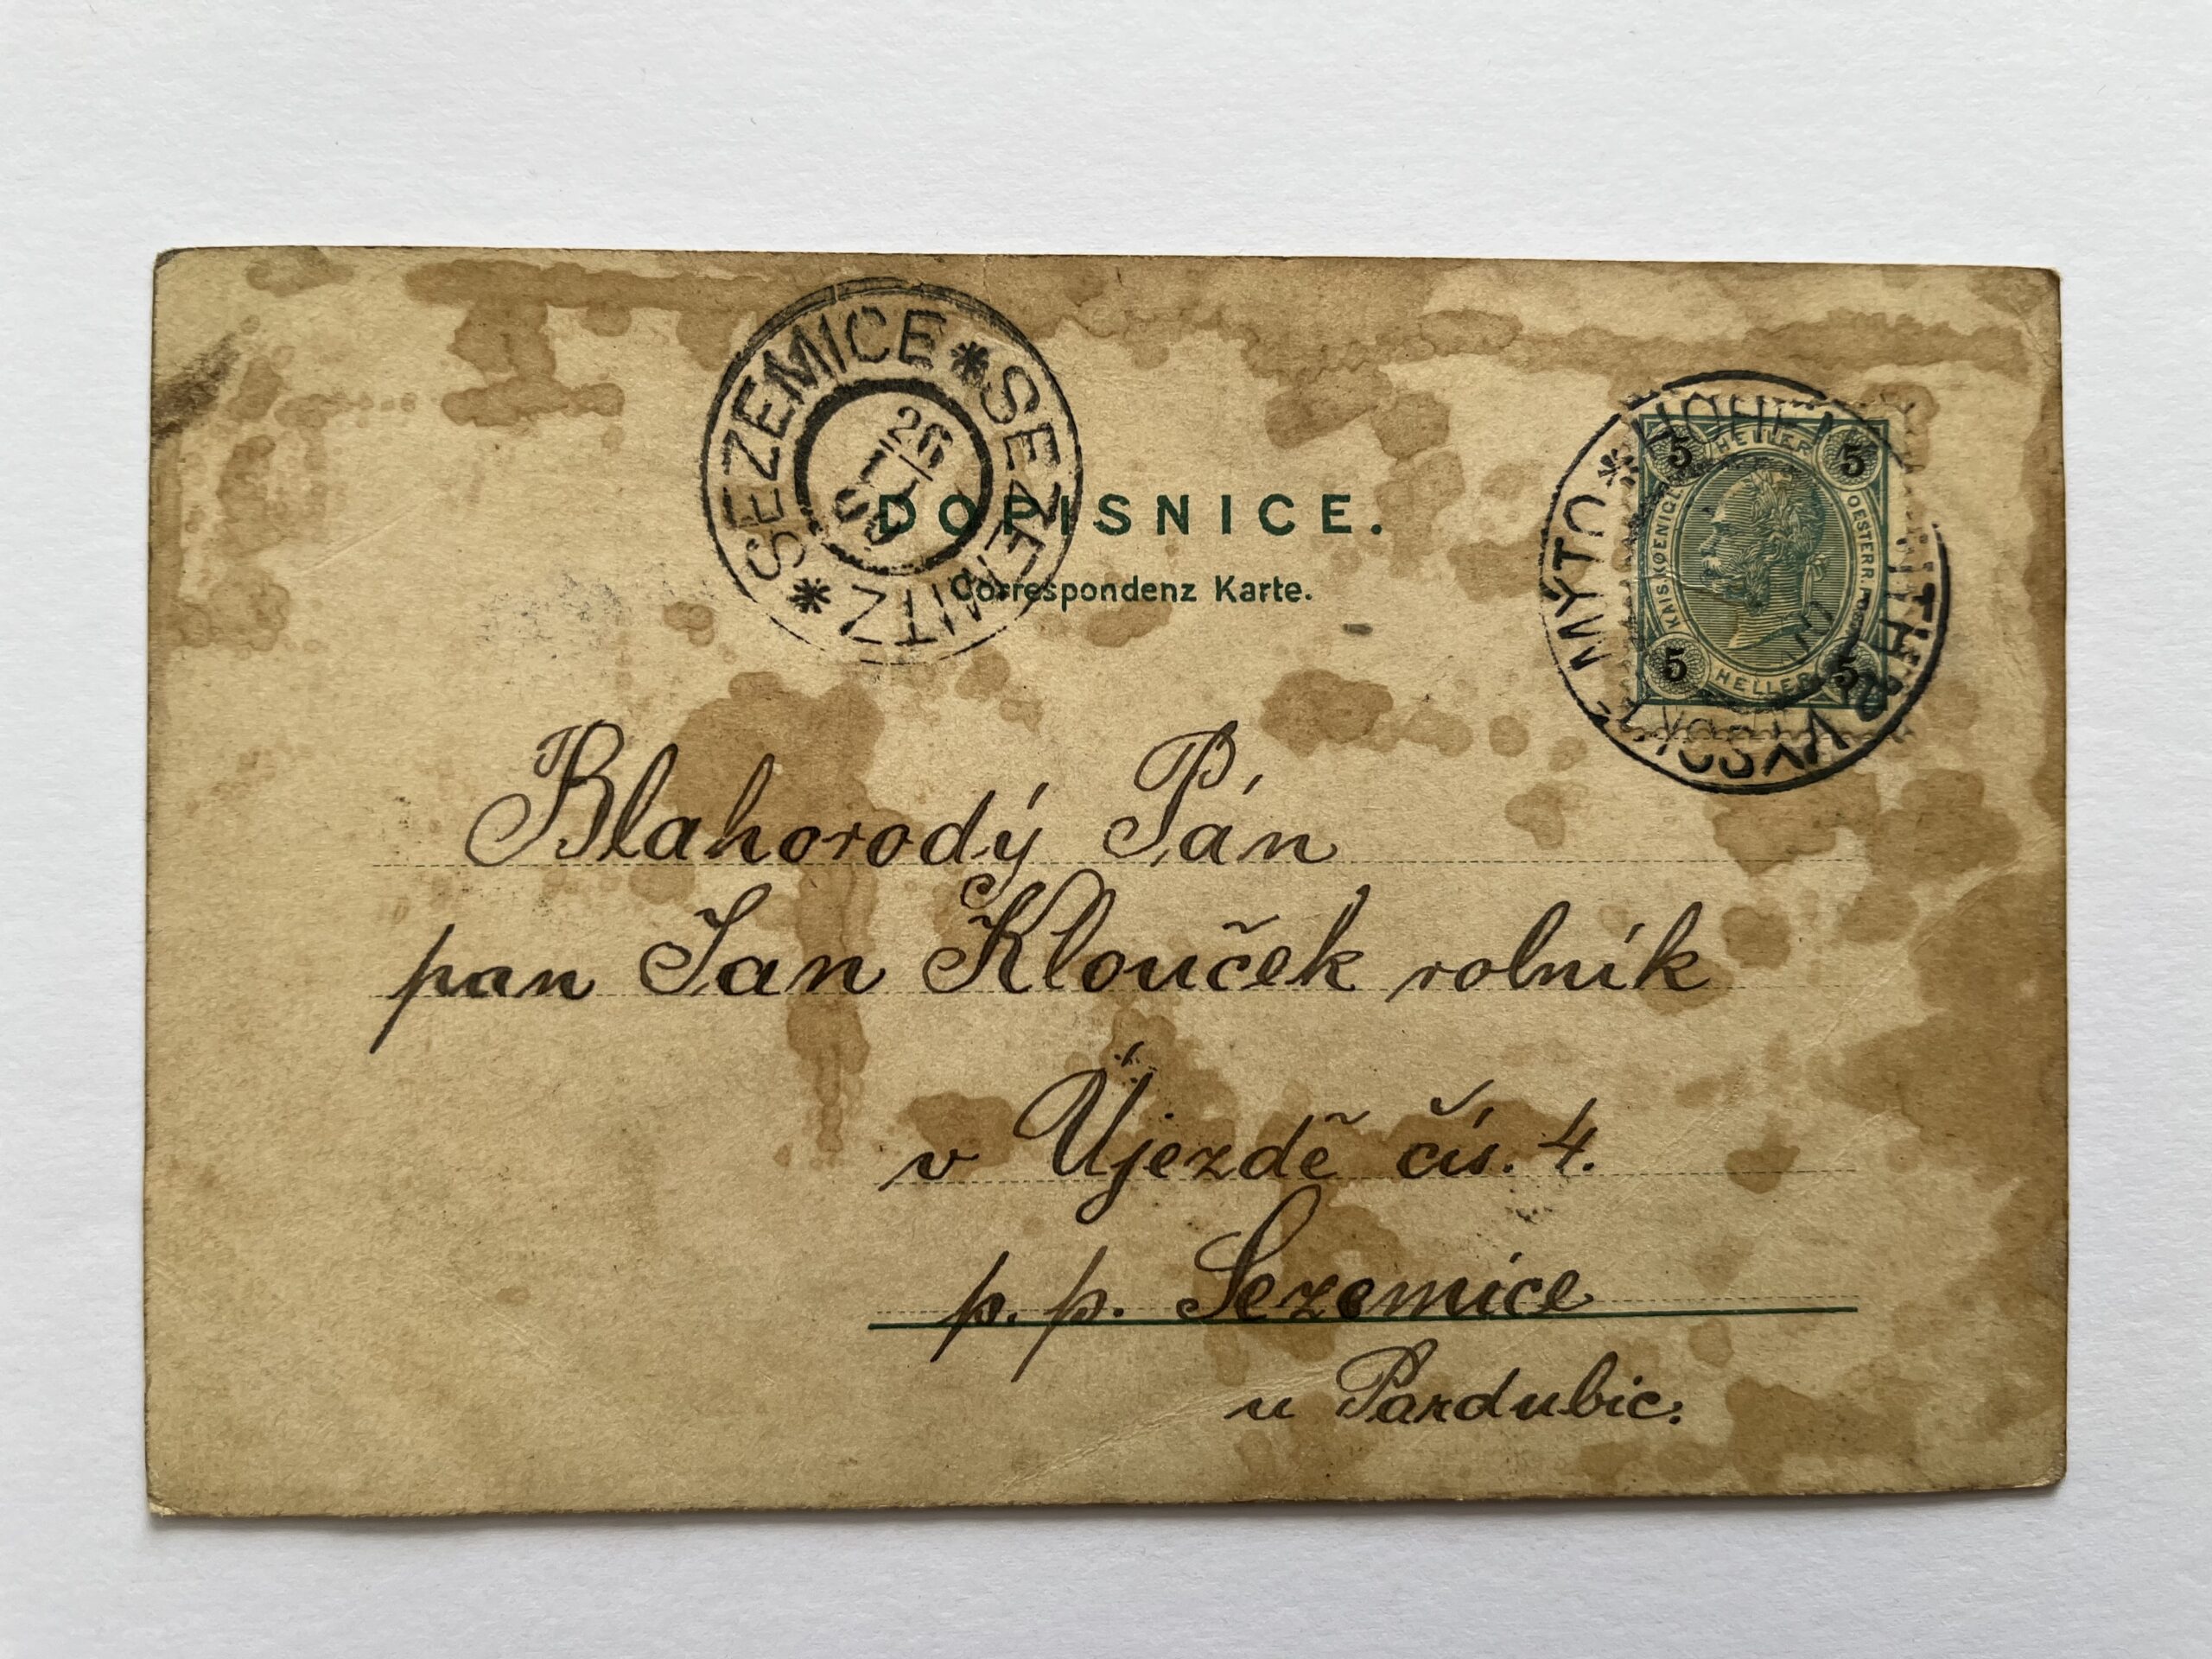 SEZEMICE * SEZEMITZ *
26
DOPISNICE.
Correspondenz Karte.
VYSOKÉ MÝTO * HOHENMAUTH
5 HELLER 5
KAIS. KOENIGL. OESTERR. POST
5 HELLER 5
Blahorodý Pán
pan Jan Klouček rolník
v Újezdě čís. 4.
p. p. Sezemice
u Pardubic.